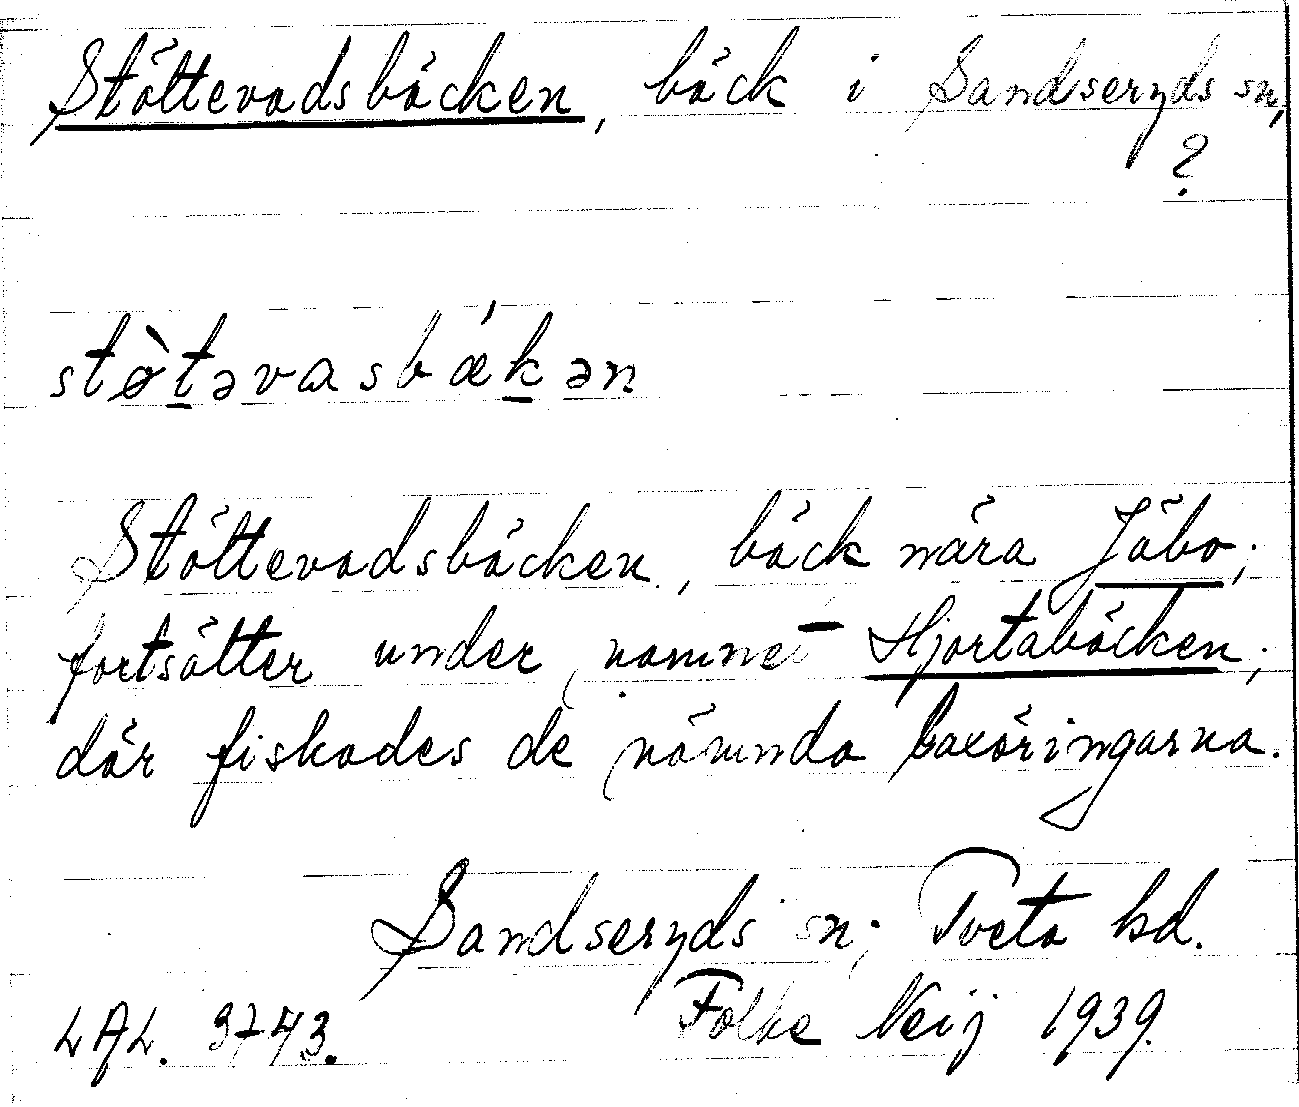 Stöttevadsbäcken, bäck i Sandseryds sn,
?
stø̀t̠əvasbǽk̠ən
Stöttevadsbäcken, bäck nära Jäbo;
fortsätter under namnet Hjortabäcken;
där fiskades de nämnda laxöringarna.
Sandseryds sn; Tveta hd.
LAL. 3743. Folke Neij 1939.